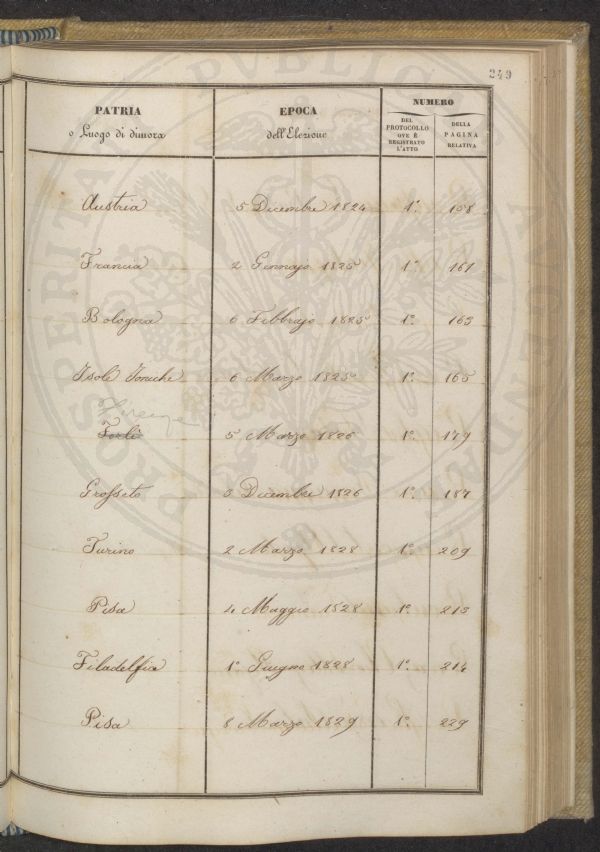 249
PATRIA
o Luogo di dimora
EPOCA
dell'Elezione
NUMERO
DEL
PROTOCOLLO
OVE È
REGISTRATO
L'ATTO
DELLA
PAGINA
RELATIVA
Austria 5 Dicembre 1824 1º. 158
Francia 2 Gennajo 1825 1º 161
Bologna 6 Febbrajo 1825 1º. 163
Isole Ioniche 6 Marzo 1825 1º. 165
Firenze
Forlì 5 Marzo 1826 1º. 179
Grosseto 3 Dicembre 1826 1º. 187
Turino 2 Marzo 1828 1º. 209
Pisa 4 Maggio 1828 1º 213
Filadelfia 1º Giugno 1828 1º. 214
Pisa 8 Marzo 1829 1º. 229
PROSPERITATI PUBLICAE AUGENDAE